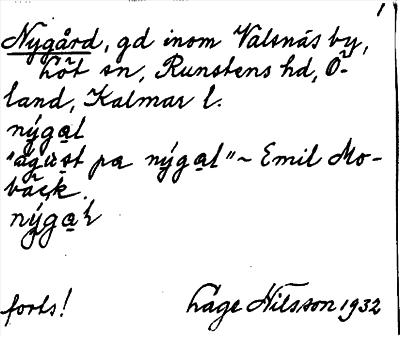 1
Nygård, gd inom Valsnäs by,
Löt sn, Runstens hd, Ö-
land, Kalmar l.
nýgal
"agust pa nýgal" ~ Emil Mo-
bäck.
nýgaḷ
forts! Åge Nilsson 1932